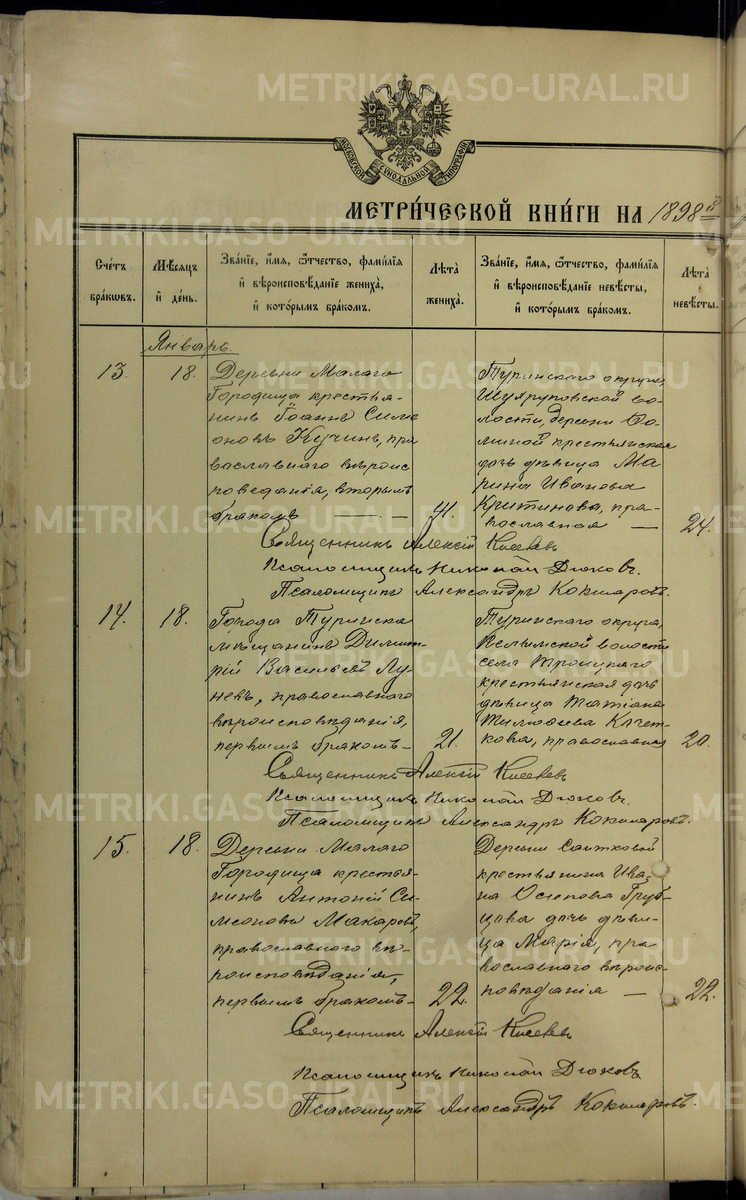 МОСКОВСКОЙ СѴНОДАЛЬНОЙ ТИПОГРАФІИ
МЕТРИ́ЧЕСКОЙ КНИ́ГИ НА 1898 й
Счетъ бра́ковъ.
Мѣсяцъ и҆ де́нь.
Зва́ніе, и҆́мя, ѻ҆́тчество, фами́лія и҆ вѣроисповѣ́даніе жениха̀, и҆ кото́рымъ бра́комъ.
Лѣ́та жениха̀.
Зва́ніе, и҆́мя, ѻ҆́тчество, фами́лія и҆ вѣроисповѣ́даніе невѣ́сты, и҆ кото́рымъ бра́комъ.
Лѣ́та невѣ́сты.
Январь.
13. 18.
Деревни Малаго
Городища крестья-
нинъ Іоаннъ Симе
оновъ Кучинъ, пра
вославнаго вѣроис
поведанія, вторымъ
бракомъ — 41.
Туринскаго округа,
волости, деревни
крестьянская
дочь дѣвица Ма
рина Иванова
пра-
вославная — 24.
Священникъ Алексій
Псаломщикъ Николай Дюковъ.
Псаломщикъ Александръ Кокшаровъ.
14. 18.
Города Туринска
мѣщанинъ Димит-
рій Васильевъ Лу-
невъ, православнаго
вѣроисповѣданія,
первымъ бракомъ — 21.
Туринскаго округа,
Пелымской волости
села Троицкаго
крестьянская дочь
дѣвица Татіана
православная 20.
Священникъ Алексій
Псаломщикъ Николай Дюковъ.
Псаломщикъ Александръ Кокшаровъ.
15. 18.
Деревни Малаго
Городища крестья-
нинъ Антоній Си-
меоновъ Макаровъ,
православнаго вѣ-
роисповѣданія,
первымъ бракомъ — 22.
Деревни Саитковой
крестьянина Ива-
на Осипова Груб-
цова дочь дѣви-
ца Марія, пра
вославнаго вѣроис
повѣданія — 22.
Священникъ Алексій
Псаломщикъ Николай Дюковъ
Псаломщикъ Александръ Кокшаровъ.
METRIKI.GASO-URAL.RU